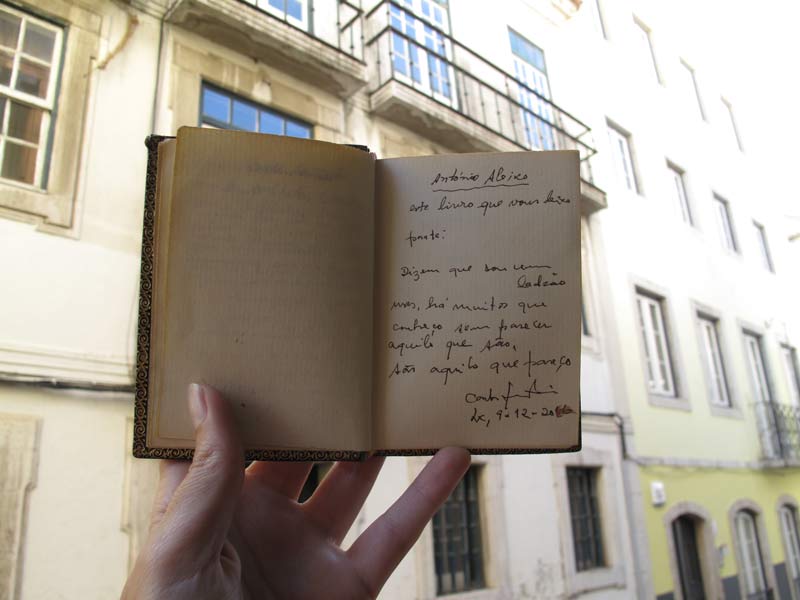 António Aleixo
este livro que vous deixo
parte:
Dizem que sou um
ladrão
mas, há muitos que
conheço sem parecer
aquilo que são,
são aquilo que pareço
Lx, 9-12-20